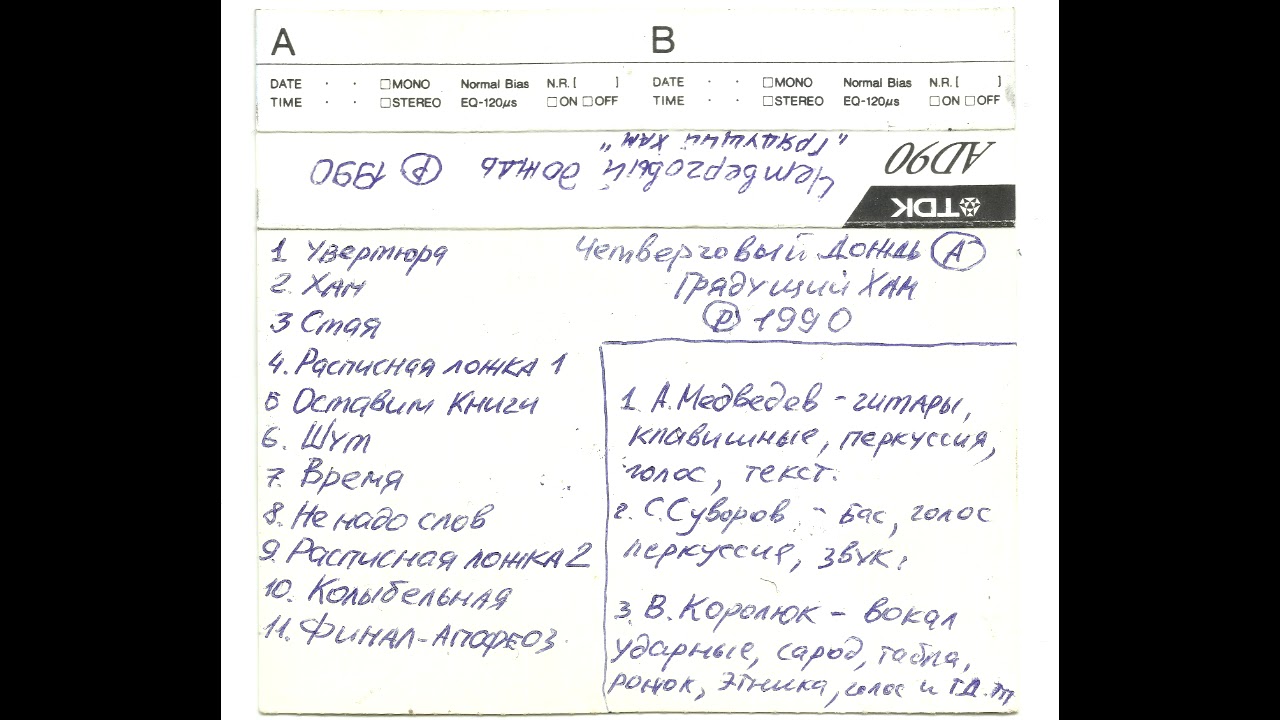 A
B
DATE · · □MONO Normal Bias N.R.[ ]
TIME · · □STEREO EQ-120μs □ON □OFF
DATE · · □MONO Normal Bias N.R.[ ]
TIME · · □STEREO EQ-120μs □ON □OFF
TDK
AD90
Четверговый дождь Ⓟ 1990
"Грядущий Хам"
1 Увертюра
2. Хам
3 Стая
4. Расписная ложка 1
5 Оставим книги
6. Шут
7. Время
8. Не надо слов
9. Расписная ложка 2
10. Колыбельная
11. Финал-Апофеоз.
Четверговый Дождь Ⓐ
Грядущий Хам
Ⓟ 1990
1. А.Медведев - гитары,
клавишные, перкуссия,
голос, текст.
2. С.Суворов - бас, голос
перкуссия, звук.
3. В.Королюк - вокал
ударные, сарод, табла,
рожок, этника, голос и т.д.